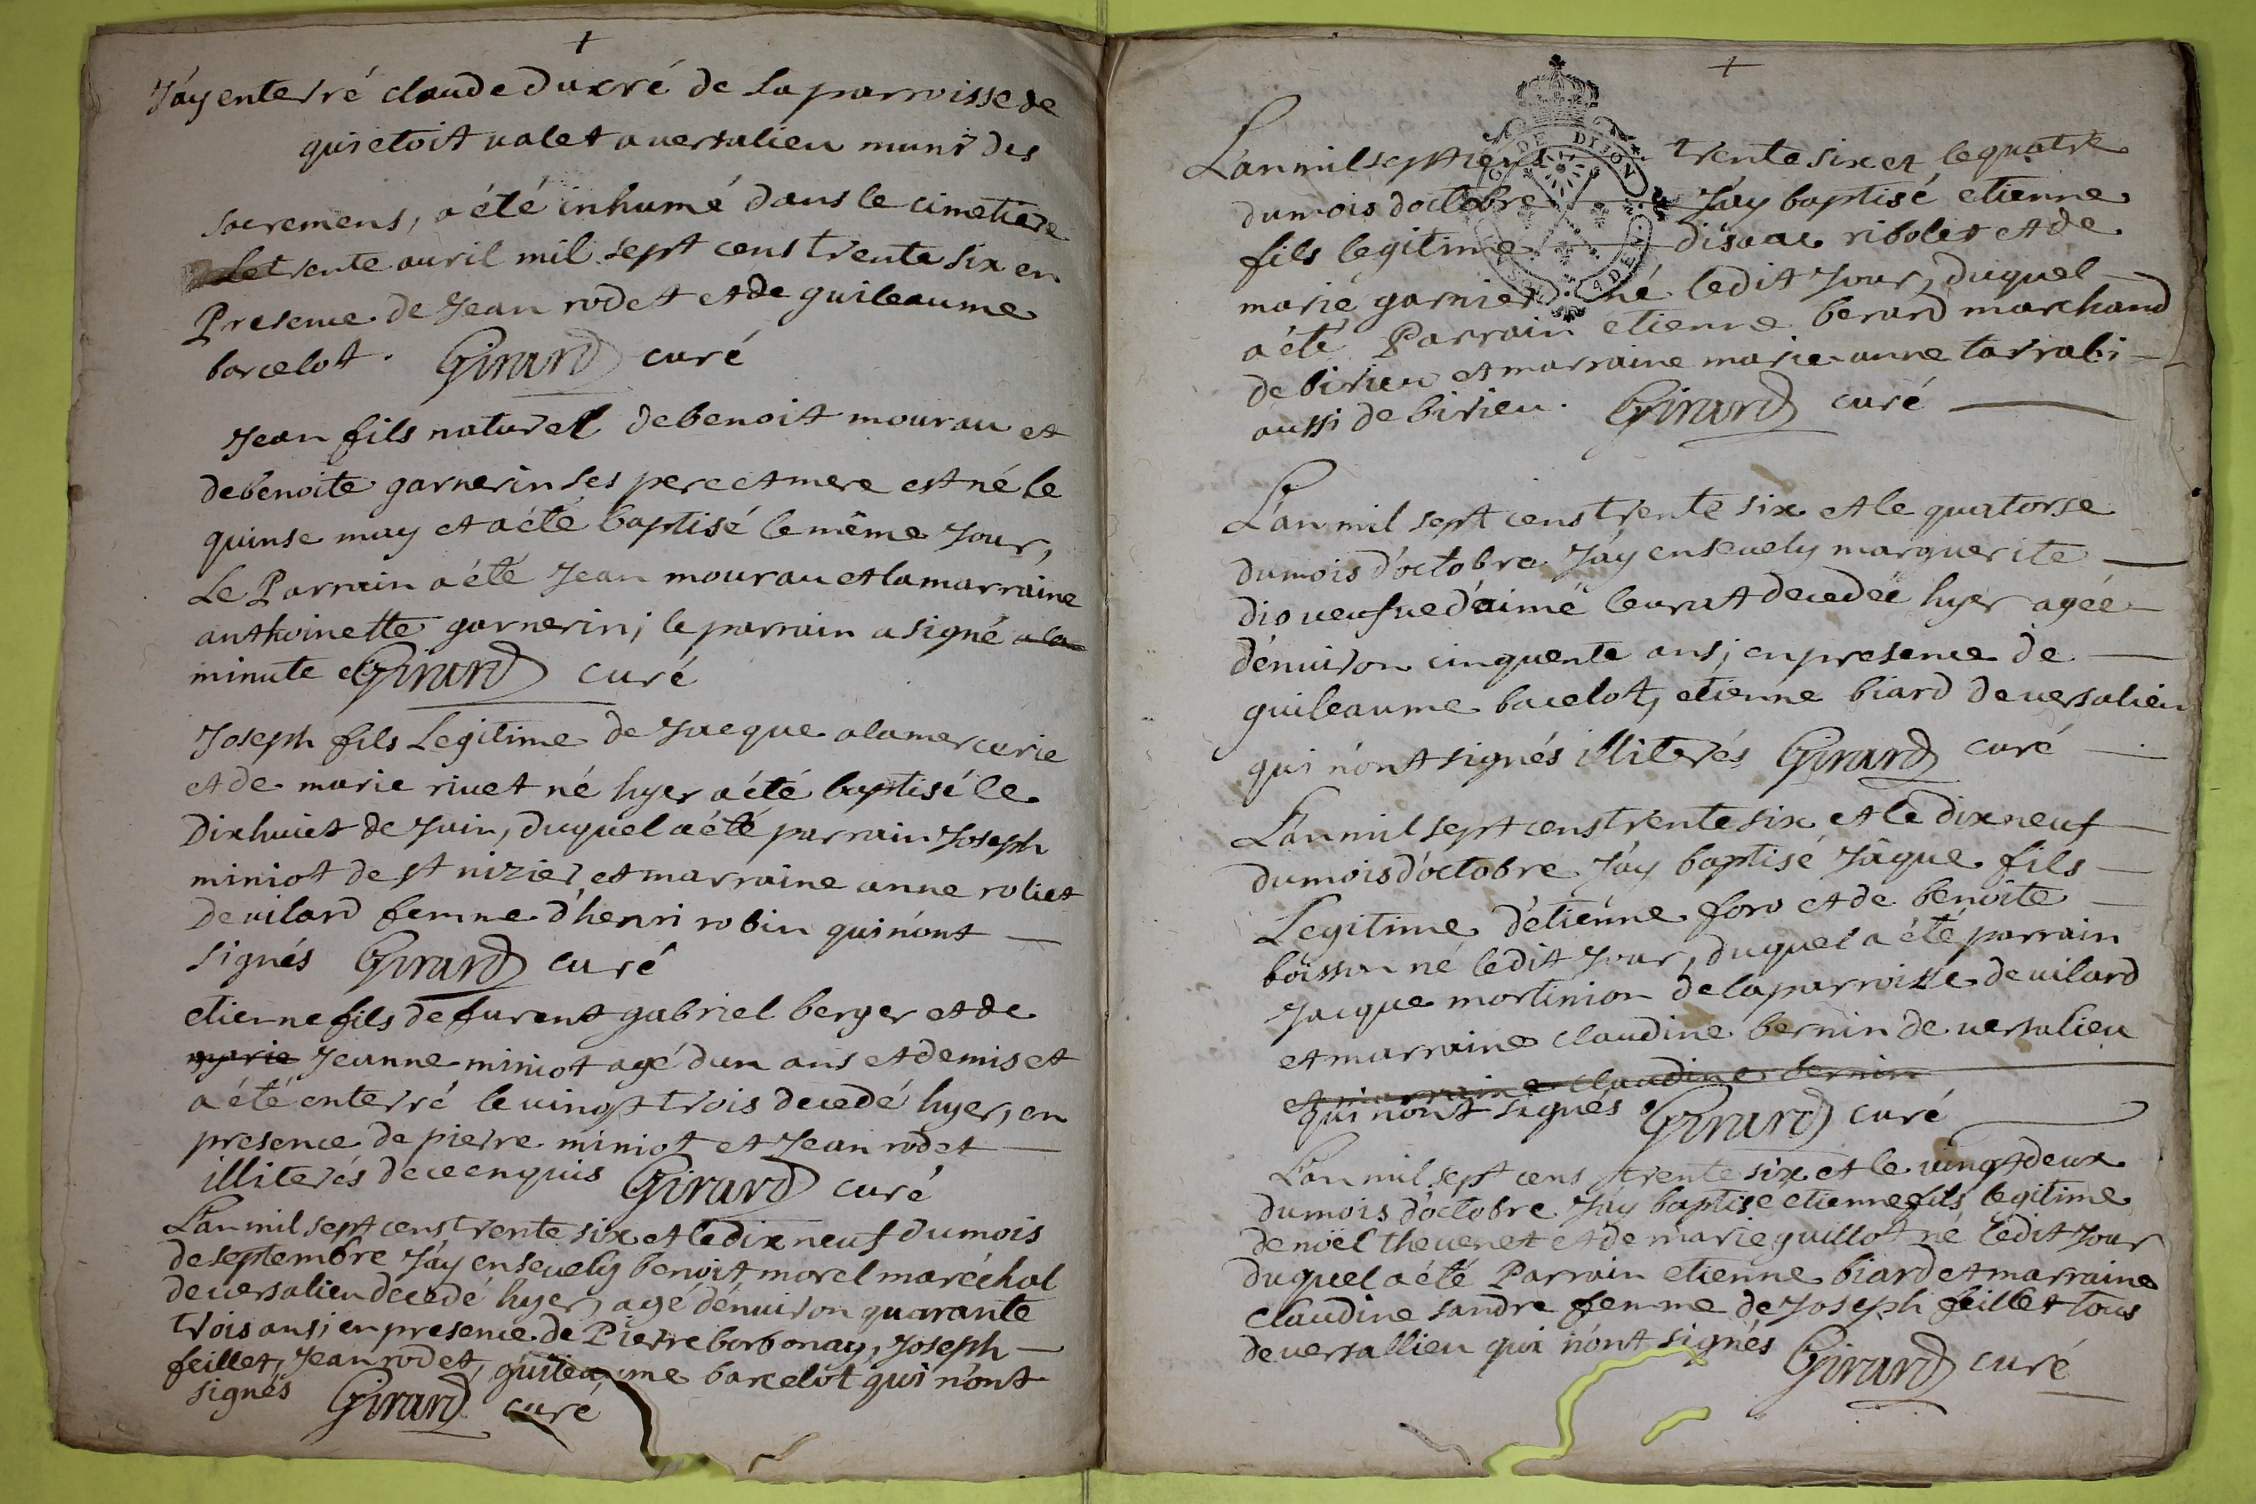 J'ay enterré claude ducré de la parroisse de
qui etoit valet a versalieu muni des
sacremens, a été inhumé dans le cimetiere
Le trente avril mil sept cens trente six en
Presence de Jean rodet et de guileaume
barcelot. Girard curé
Jean fils naturel de benoit mourau et
de benoite garnerin ses pere et mere est né le
quinse may et a été baptisé le même Jour,
Le Parrain a été Jean mourau et la marraine
anthoinette garnerin; le parrain a signé a la
minute et Girard curé
Joseph fils Legitime de Jacque alamercurie
et de marie rivet né hyer a été baptisé le
Dixhuict de Juin, duquel a été parrain Joseph
miniot de st nizier et marraine anne roliet
de vilard femme d'henri robin qui n'ont
signés Girard curé
etienne fils de furent gabriel berger et de
marie Jeanne miniot agé d'un ans et demis et
a été enterré le vingt trois decedé hyer, en
presence de pierre miniot et Jean rodet
illiterés de ce enquis Girard curé
L'an mil sept cens trente six et le dix neuf du mois
de septembre J'ay ensevely benoit morel maréchal
de versalieu decedé hyer, agé d'énviron quarante
trois ans; en presence de Pierre borbonay, Joseph
feillet, Jean rodet, guileaume barcelot qui n'ont
signés Girard curé
DE DIJON
L'an mil sept cens trente six et le quatre
du mois d'octobre J'ay baptisé etienne
fils legitime d'isaac ribolet et de
marie garnier né ledit Jour, duquel
a été Parrain etienne berard marchand
de birieu et marraine marie-anne tarrabi
aussi de birieu. Girard curé
L'an mil sept cens trente six et le quatorse
du mois d'octobre J'ay ensevely marguerite
dio veufve d'aimé leurat decedée hyer agée
d'énviron cinquente ans; en presence de
guileaume bacelot, etienne biard de versalieu
qui n'ont signés illiterés Girard curé
L'an mil sept cens trente six et le dix neuf
du mois d'octobre J'ay baptisé Jâque fils
Legitime d'etienne foro et de benoite
boisson né ledit Jour, duquel a été parrain
Jacque mortinion de la parroisse de vilard
et marraine claudine bernin de versalieu
et marraine claudine bernin
qui n'ont signés. Girard curé
L'an mil sept cens trente six et le vingt deux
du mois d'octobre J'ay baptisé etienne fils legitime
de noël thevenet et de marie guillot né ledit Jour
duquel a été Parrain etienne biard et marraine
Claudine sandre femme de Joseph feillet tous
de versallieu qui n'ont signés Girard curé